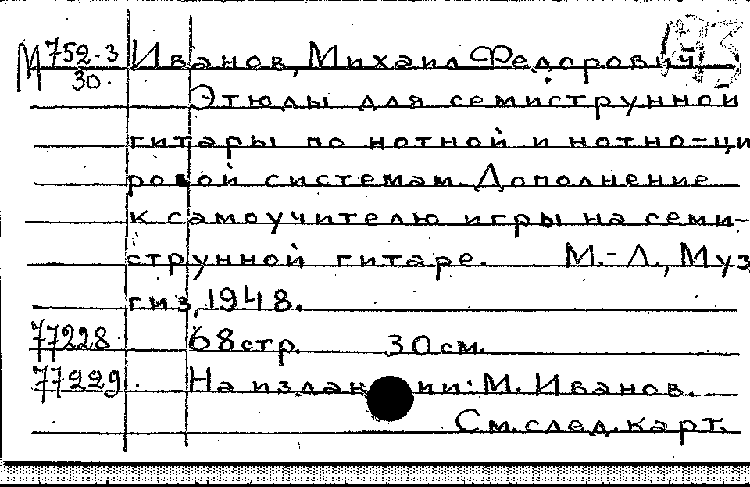 М 752-3 Иванов, Михаил Федорович
30. Этюды для семиструнной
гитары по нотной и нотно-ци
ровой системам. Дополнение
к самоучителю игры на семи-
струнной гитаре. М.-Л., Муз
гиз, 1948.
77228 68 стр. 30 см.
77229 На издании: М. Иванов.
См. след. карт.